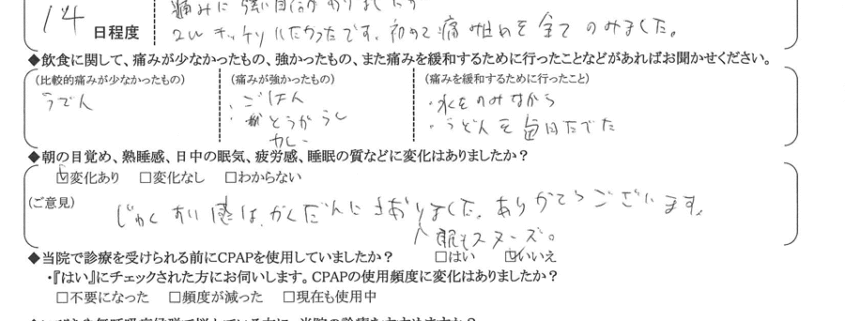 14 日程度
2W キッチリ
初めて痛み止めを全てのみました。
◆飲食に関して、痛みが少なかったもの、強かったもの、また痛みを緩和するために行ったことなどがあればお聞かせください。
(比較的痛みが少なかったもの) (痛みが強かったもの) (痛みを緩和するために行ったこと)
うどん ・ごはん ・水をのみながら
・とうがらし ・うどんを毎日たべた
カレー
◆朝の目覚め、熟睡感、日中の眠気、疲労感、睡眠の質などに変化はありましたか？
☑変化あり □変化なし □わからない
(ご意見)
じゅくすい感は、かくだんに ありがとうございます。
眠もスムーズ。
◆当院で診療を受けられる前にCPAPを使用していましたか？ □はい ☑いいえ
・『はい』にチェックされた方にお伺いします。CPAPの使用頻度に変化はありましたか？
□不要になった □頻度が減った □現在も使用中